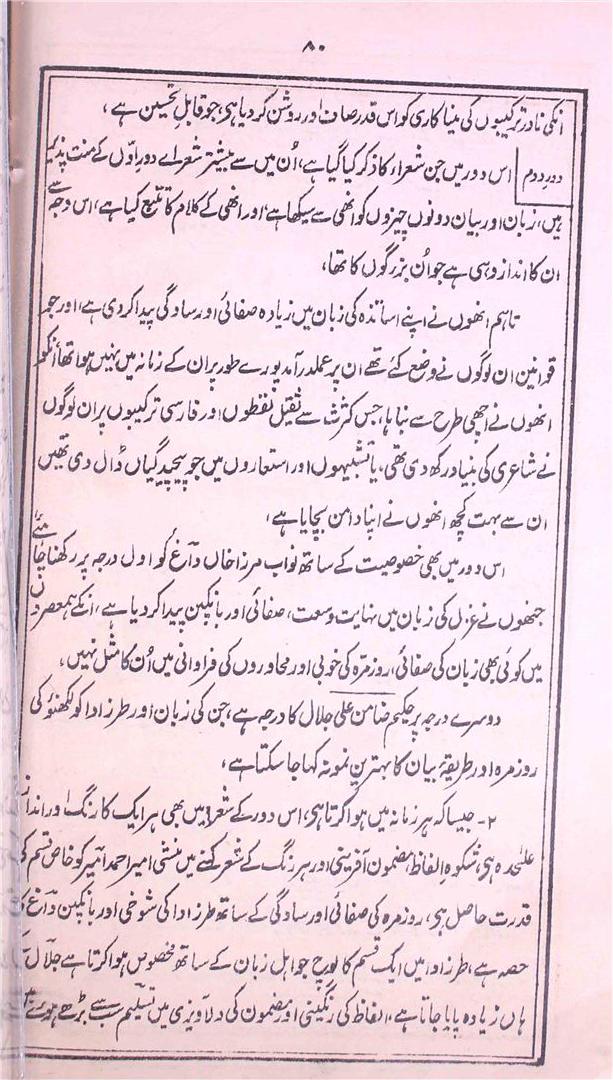 ۸۰
انکی نادر ترکیبوں کی مینا کاری کو اس قدر صاف اور روشن کر دیا ہی، جو قابلِ تحسین ہے،
دورِ دوم اس دور میں جن شعراء کا ذکر کیا گیا ہے، اُن میں سے بیشتر شعراے دورِ اوّل کے منت پذیر
ہیں، زبان اور بیان دونوں چیزوں کو انھی سے سیکھا ہے اور انھی کے کلام کا تتبع کیا ہے، اس وجہ سے
ان کا انداز وہی ہے جو اُن بزرگوں کا تھا،
تاہم انھوں نے اپنے اساتذہ کی زبان میں زیادہ صفائی اور سادگی پیدا کر دی ہے، اور جو
قوانین ان لوگوں نے وضع کئے تھے ان پر عملدرآمد پورے طور پر ان کے زمانہ میں نہیں ہوا تھا انکو
انھوں نے اچھی طرح سے نباہا، جس کثرت سے ثقیل لفظوں اور فارسی ترکیبوں پر ان لوگوں
نے شاعری کی بنیاد رکھ دی تھی، یا تشبیہوں اور استعاروں میں جو پیچیدگیاں ڈال دی تھیں
ان سے بہت کچھ انھوں نے اپنا دامن بچایا ہے،
اس دور میں بھی خصوصیت کے ساتھ نواب مرزا خاں داغ کو اول درجہ پر رکھنا چاہئے
جنھوں نے غزل کی زبان میں نہایت وسعت، صفائی اور بانکپن پیدا کر دیا ہے، انکے ہمعصروں
میں کوئی بھی زبان کی صفائی، روزمرّہ کی خوبی اور محاوروں کی فراوانی میں اُن کا مثل نہیں،
دوسرے درجہ پر حکیم ضامن علی جلال کا درجہ ہے، جن کی زبان اور طرز ادا کو لکھنؤ کی
روزمرہ اور طریقۂ بیان کا بہترین نمونہ کہا جا سکتا ہے،
۲- جیسا کہ ہر زمانہ میں ہوا کرتا ہی، اس دور کے شعرا میں بھی ہر ایک کا رنگ اور انداز
علٰحدہ ہی، شکوہِ الفاظ، مضمون آفرینی اور ہر رنگ کے شعر کہنے میں منشی امیر احمد امیر کو خاص قسم کی
قدرت حاصل ہی، روزمرہ کی صفائی اور سادگی کے ساتھ طرز ادا کی شوخی اور بانکپن داغ کا
حصہ ہے، طرز ادا میں ایک قسم کا لوچ جو اہل زبان کے ساتھ مخصوص ہوا کرتا ہے جلال کے
ہاں زیادہ پایا جاتا ہے، الفاظ کی رنگینی اور مضمون کی دلآویزی میں تسلیم سب سے بڑھے ہوئے ہیں